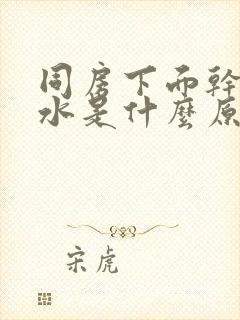 同房下而幹
水是什麼原
宋虎